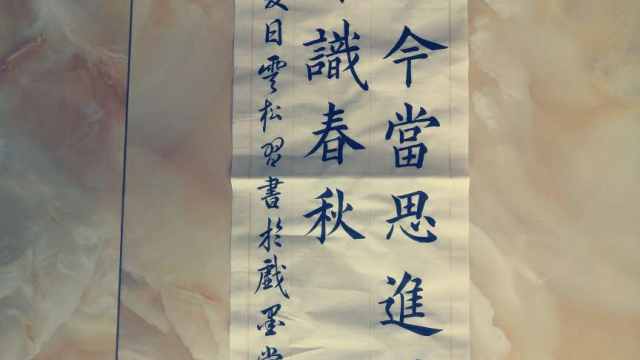 今當思進
識春秋
日雲松習書於戲墨堂